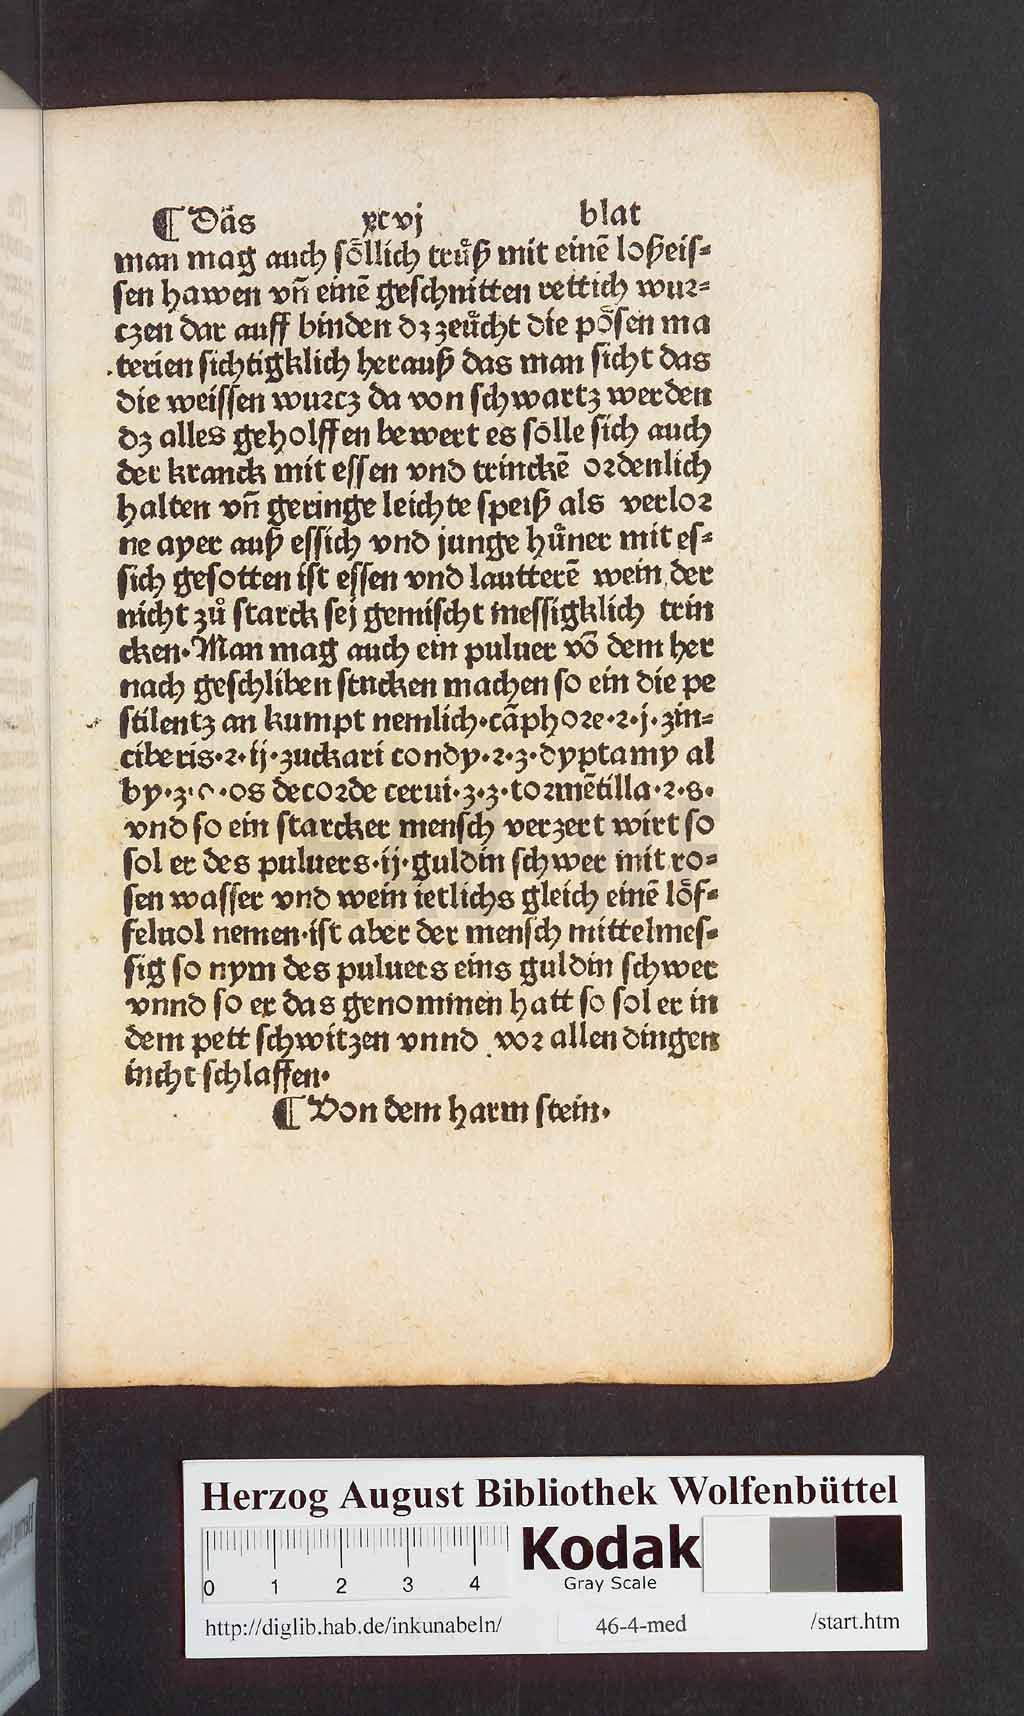 ¶ Das xcvj blat
man mag auch soͤllich truͤß mit einē loßeis⸗
sen hawen vn̄ einē geschnitten rettich wur⸗
czen dar auff binden dz zeuͤcht die poͤsen ma
terien sichtigklich herauß das man sicht das
die weissen wurcz da von schwartz werden
dz alles geholffen bewert es soͤlle sich auch
der kranck mit essen vnd trinckē ordenlich
halten vn̄ geringe leichte speiß als verlor
ne ayer auß essich vnd junge huͤner mit es⸗
sich gesotten ist essen vnd lautterē wein der
nicht zuͦ starck sej gemischt messigklich trin
cken·Man mag auch ein puluer vō dem her
nach geschliben stucken machen so ein die pe
stilentz an kumpt nemlich·cāphore·2·j·zin⸗
ciberis·2·ij·zuckari condy·2·3·dyptamy al
by·3· ·os decorde cerui·3·3·tormētilla·2·s·
vnd so ein starcker mensch verzert wirt so
sol er des puluers·ij·guldin schwer mit ro⸗
sen wasser vnd wein ietlichs gleich einē loͤf⸗
feluol nemen·ist aber der mensch mittelmes⸗
sig so nym des puluers eins guldin schwer
vnnd so er das genommen hatt so sol er in
dem pett schwitzen vnnd vor allen dingen
incht schlaffen·
¶ Von dem harm stein·
HAB WF
Herzog August Bibliothek Wolfenbüttel
0 1 2 3 4
Kodak
Gray Scale
http://diglib.hab.de/inkunabeln/ 46-4-med /start.htm